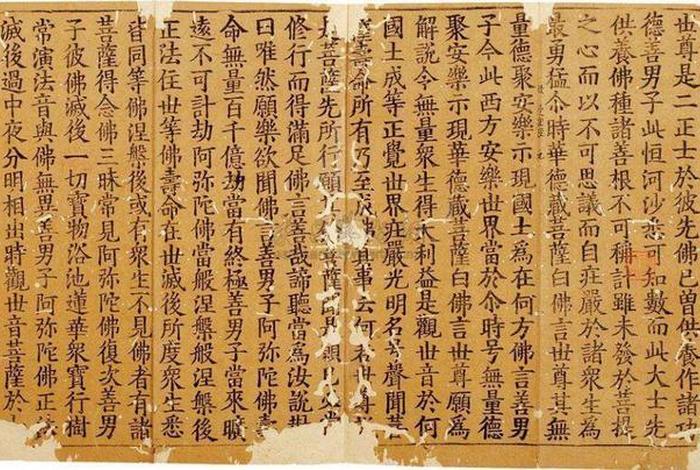 也尊是二正士於彼先佛已曾供養作諸功
德善男子此恒河沙亦可知數而此大士先
供養佛種諸善根不可稱計雖未發於菩提
之心而以不可思議而自莊嚴於諸衆生為
最勇猛尒時華德藏菩薩白佛言世尊其無
量德聚安樂示現國土為在何方佛言善男
子今此西方安樂世界當於尒時号無量德
聚安樂示現華德藏菩薩白佛言世尊願為
解說令無量衆生得大利益是觀世音於何
國土成等正覺世界莊嚴光明名号聲聞菩
薩壽命所有乃至成佛其事云何若世尊
是菩薩先所行願菩薩聞是願已當
修行而得滿足佛言善哉諦聽當為汝說對
曰唯然願樂欲聞佛言善男子阿弥陀佛壽
命無量百千億劫當有終極善男子當來曠
遠不可計劫阿弥陀佛當般涅槃般涅槃後
正法住世等佛壽命在世滅後所度衆生悉
皆同等佛涅槃後或有衆生不見佛者有諸
菩薩得念佛三昧常見阿弥陀佛復次善男
子彼佛滅後一切寶物浴池蓮華衆寶行樹
常演法音與佛無異善男子阿弥陀佛正法
滅後過中夜分明相出時觀世音菩薩於